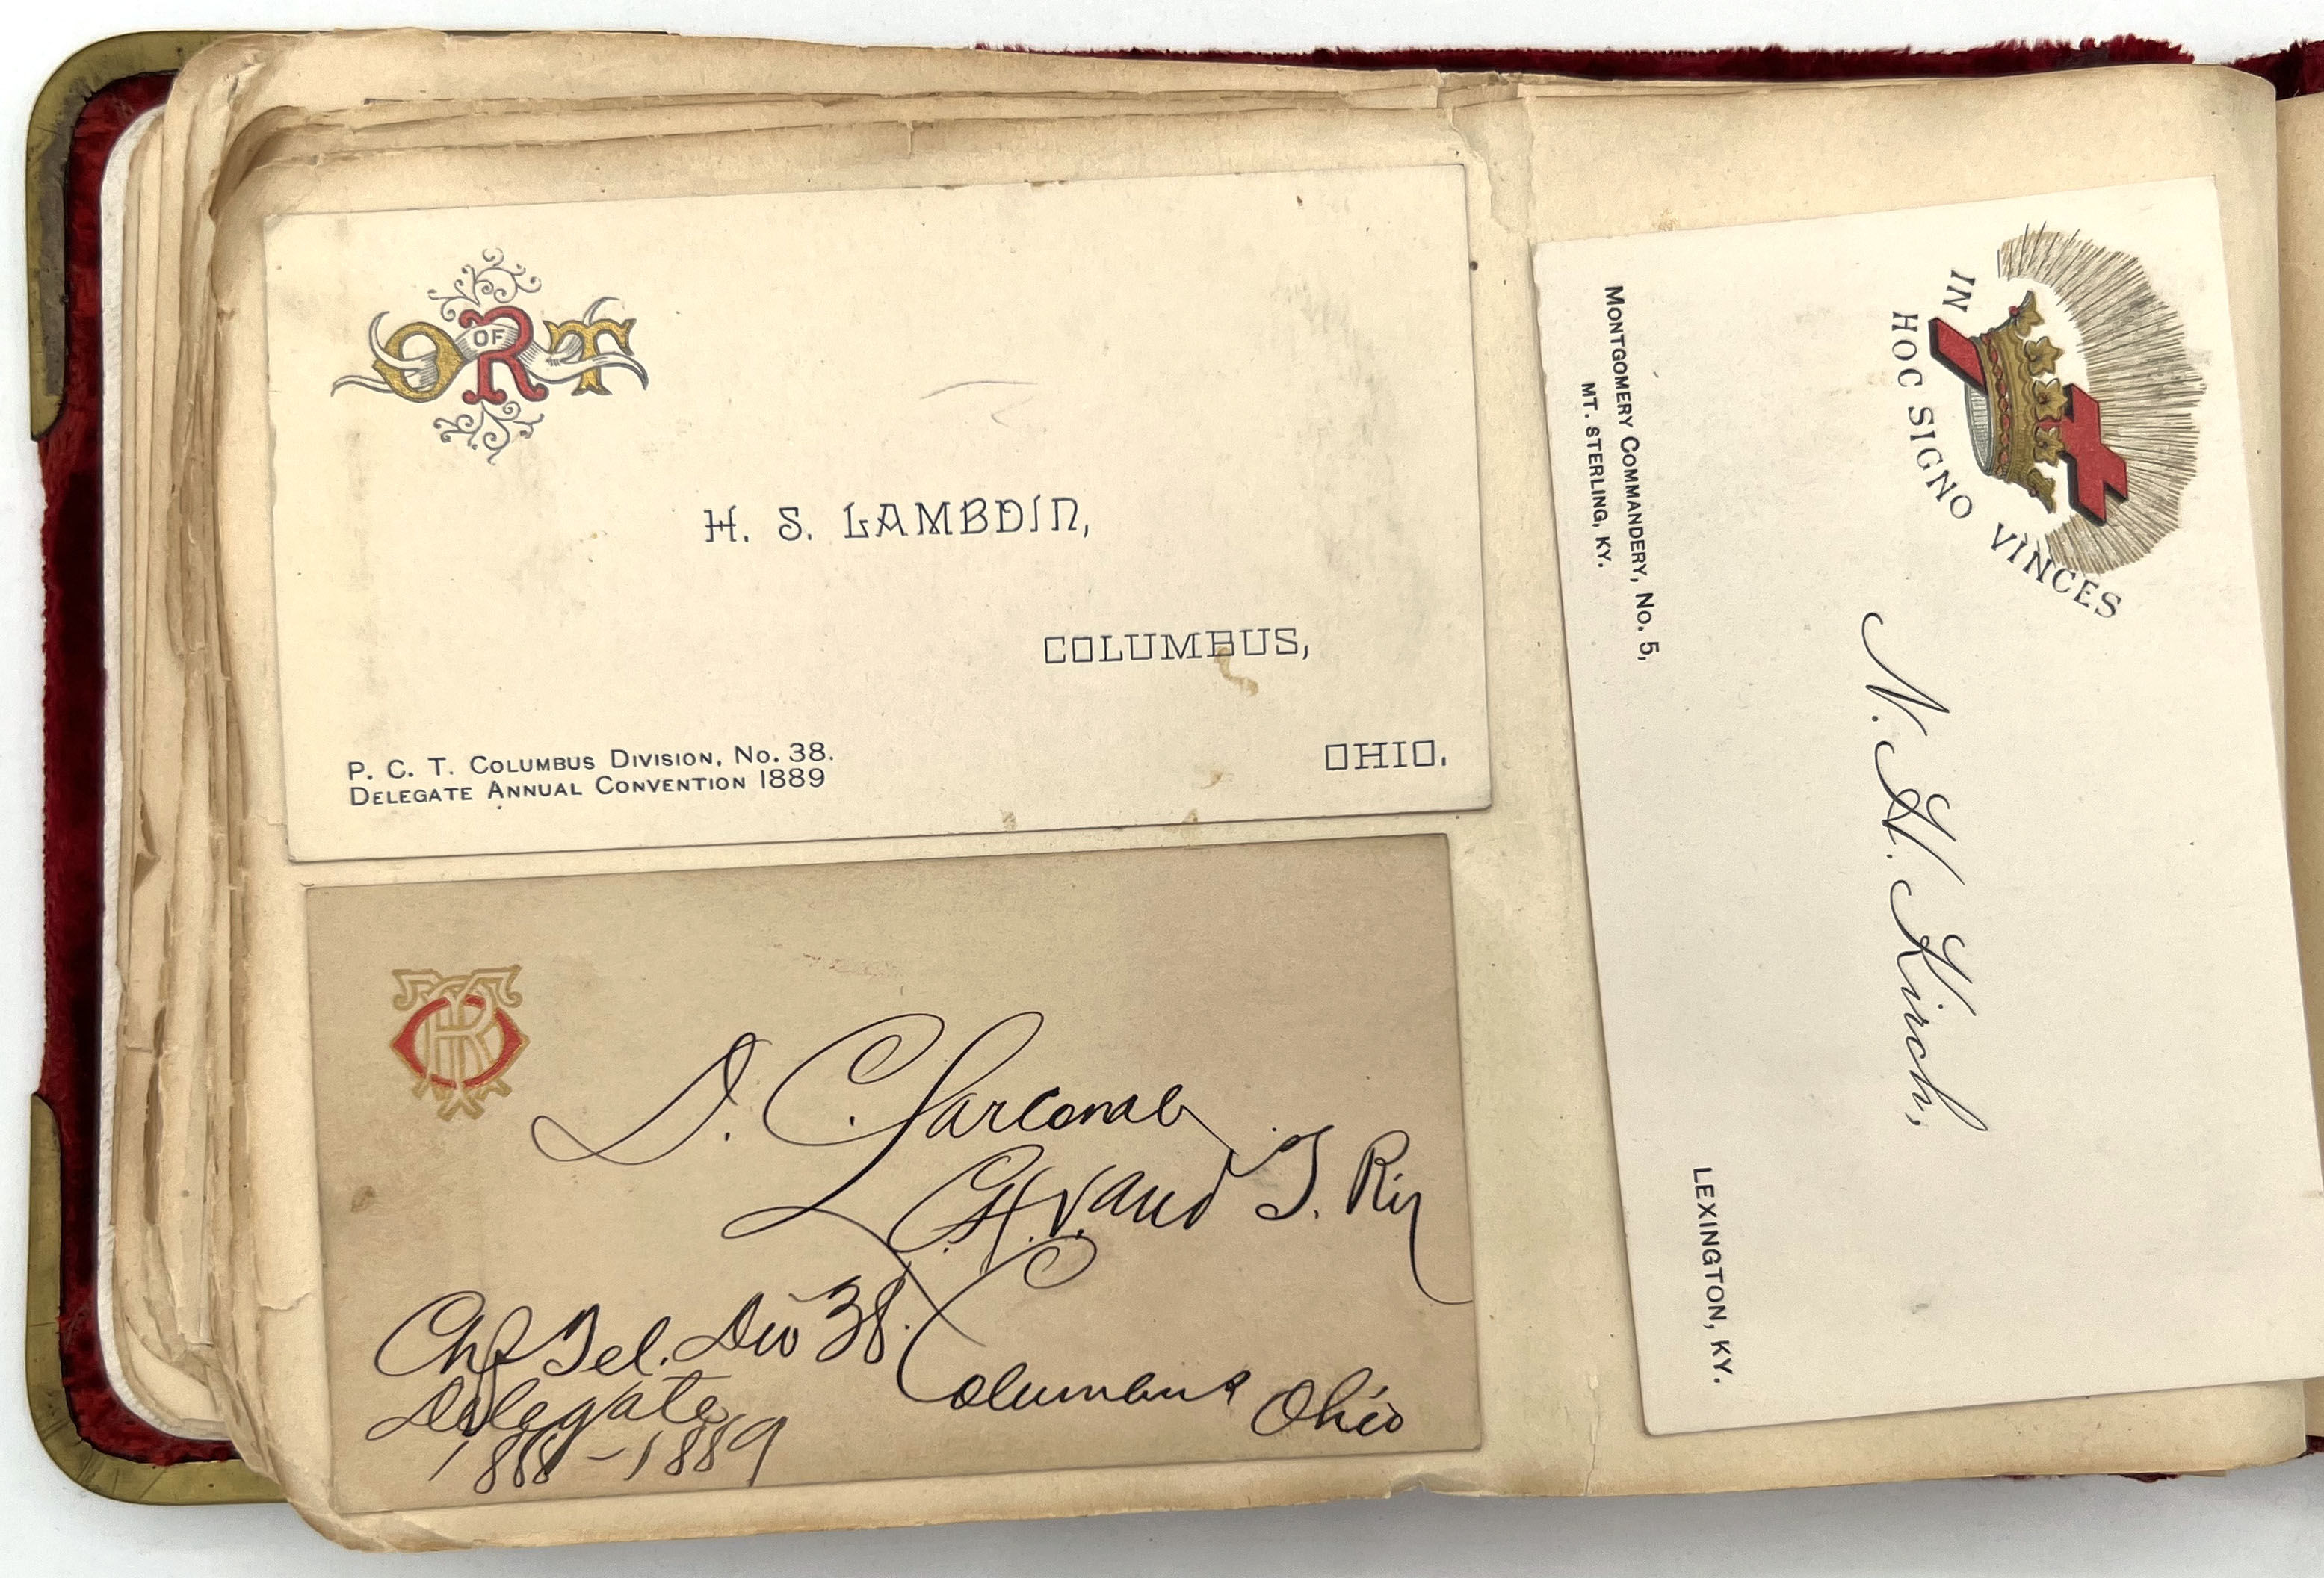 O OF R T
H. S. LAMBDIN,
COLUMBUS,
OHIO.
P. C. T. COLUMBUS DIVISION, No. 38.
DELEGATE ANNUAL CONVENTION 1889
ORT
D. C.
C.H.V. and T. Ry
Chf Tel. Div 38.
Delegate
1888-1889
Columbus Ohio
IN HOC SIGNO VINCES
N. H. Kirch,
MONTGOMERY COMMANDERY, No. 5,
MT. STERLING, KY.
LEXINGTON, KY.